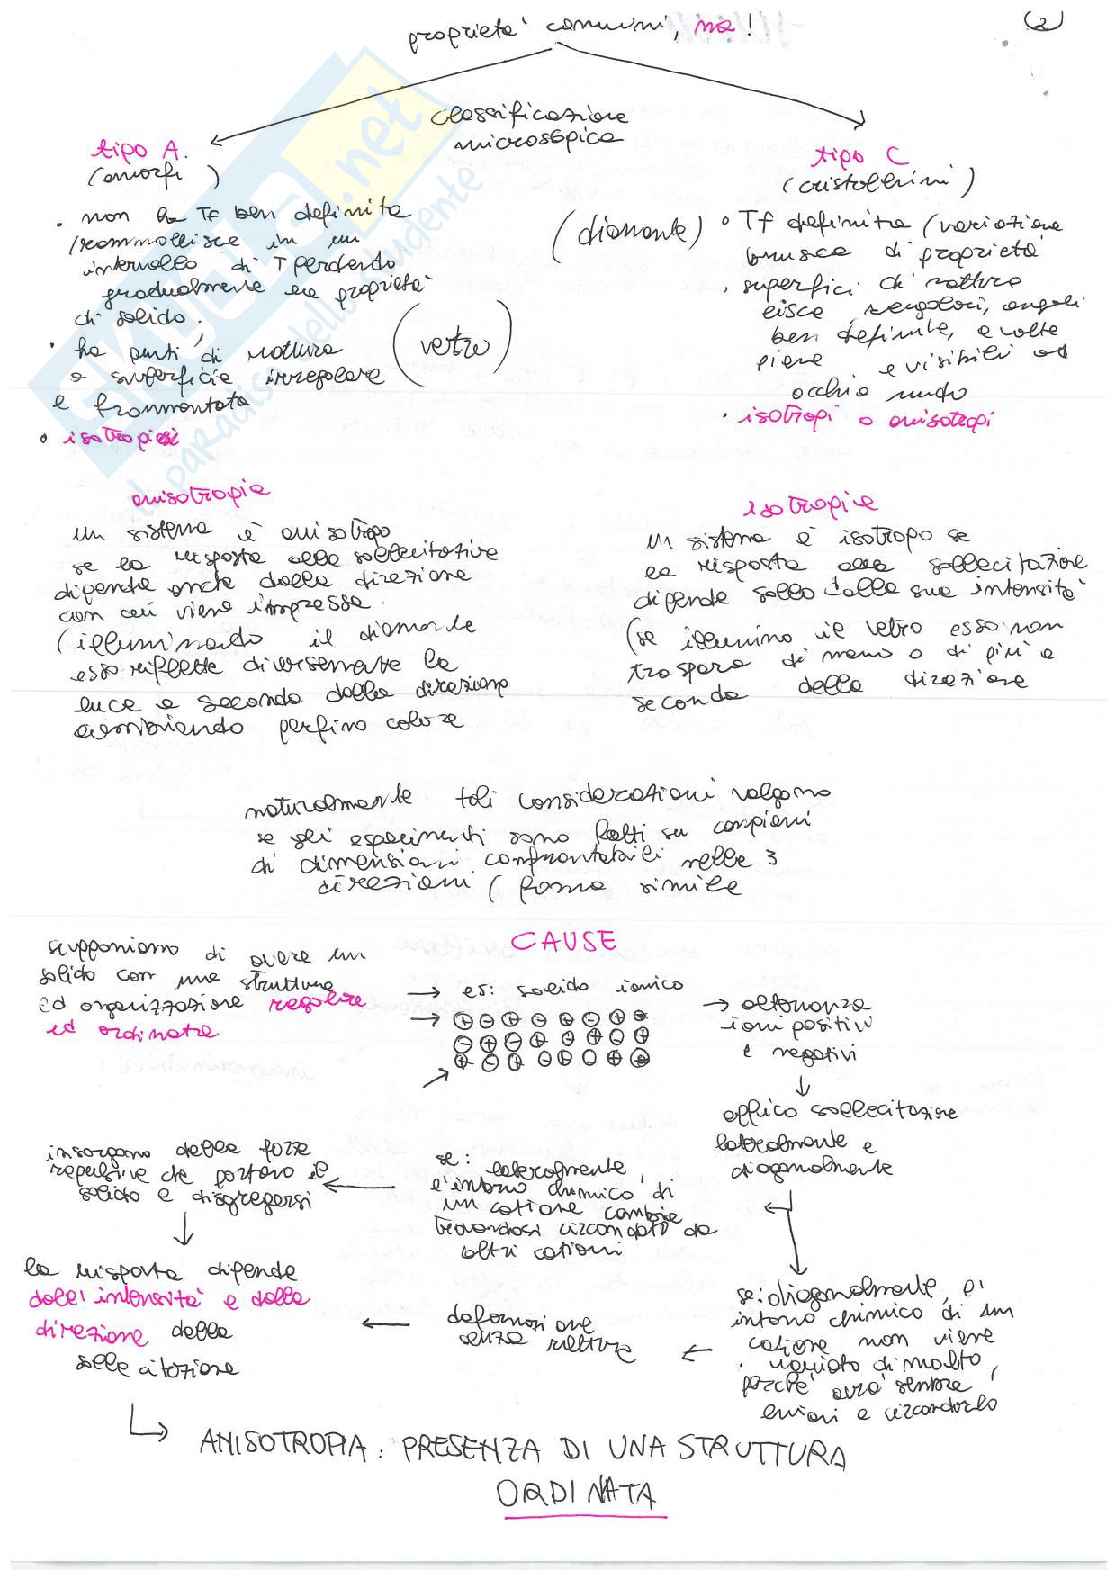 proprietà comuni, ma!
(2)
classificazione
microscopica
tipo A.
(amorfi)
. non ha Tf ben definita
(rammollisce in un
intervallo di T perdendo
gradualmente le proprietà
di solido.
. ha punti di rottura
o superficie irregolare
e frammentata
(vetro)
• isotropici
tipo C
(cristallini)
(diamante)
• Tf definita (variazione
brusca di proprietà
. superfici di rottura
liscia, regolari, angoli
ben definite, a volte
piane e visibili ad
occhio nudo
. isotropi o anisotropi
anisotropia
un sistema è anisotropo
se la risposta alla sollecitazione
dipende anche dalla direzione
con cui viene impressa.
(illuminando il diamante
esso riflette diversamente la
luce a seconda della direzione
cambiando perfino colore
isotropia
un sistema è isotropo se
la risposta alla sollecitazione
dipende solo dalla sua intensità
(se illumino il vetro esso non
traspare di meno o di più a
seconda della direzione
naturalmente tali considerazioni valgono
se gli esperimenti sono fatti su campioni
di dimensioni confrontabili nelle 3
direzioni (forma simile
CAUSE
supponiamo di avere un
solido con una struttura
ed organizzazione regolare
ed ordinata
→ es: solido ionico
→ alternanza
ioni positivi
e negativi
applico sollecitazione
lateralmente e
diagonalmente
se: lateralmente,
l'intorno chimico di
un catione cambia
trovandosi circondato da
altri cationi
insorgono delle forze
repulsive che portano il
solido a disgregarsi
la risposta dipende
dall'intensità e dalla
direzione della
sollecitazione
se: diagonalmente, l'
intorno chimico di un
catione non viene
variato di molto,
perché avrà sempre
anioni a circondarlo
deformazione
senza rottura
ANISOTROPIA: PRESENZA DI UNA STRUTTURA
ORDINATA
SKUOLA.net
il paradiso dello studente